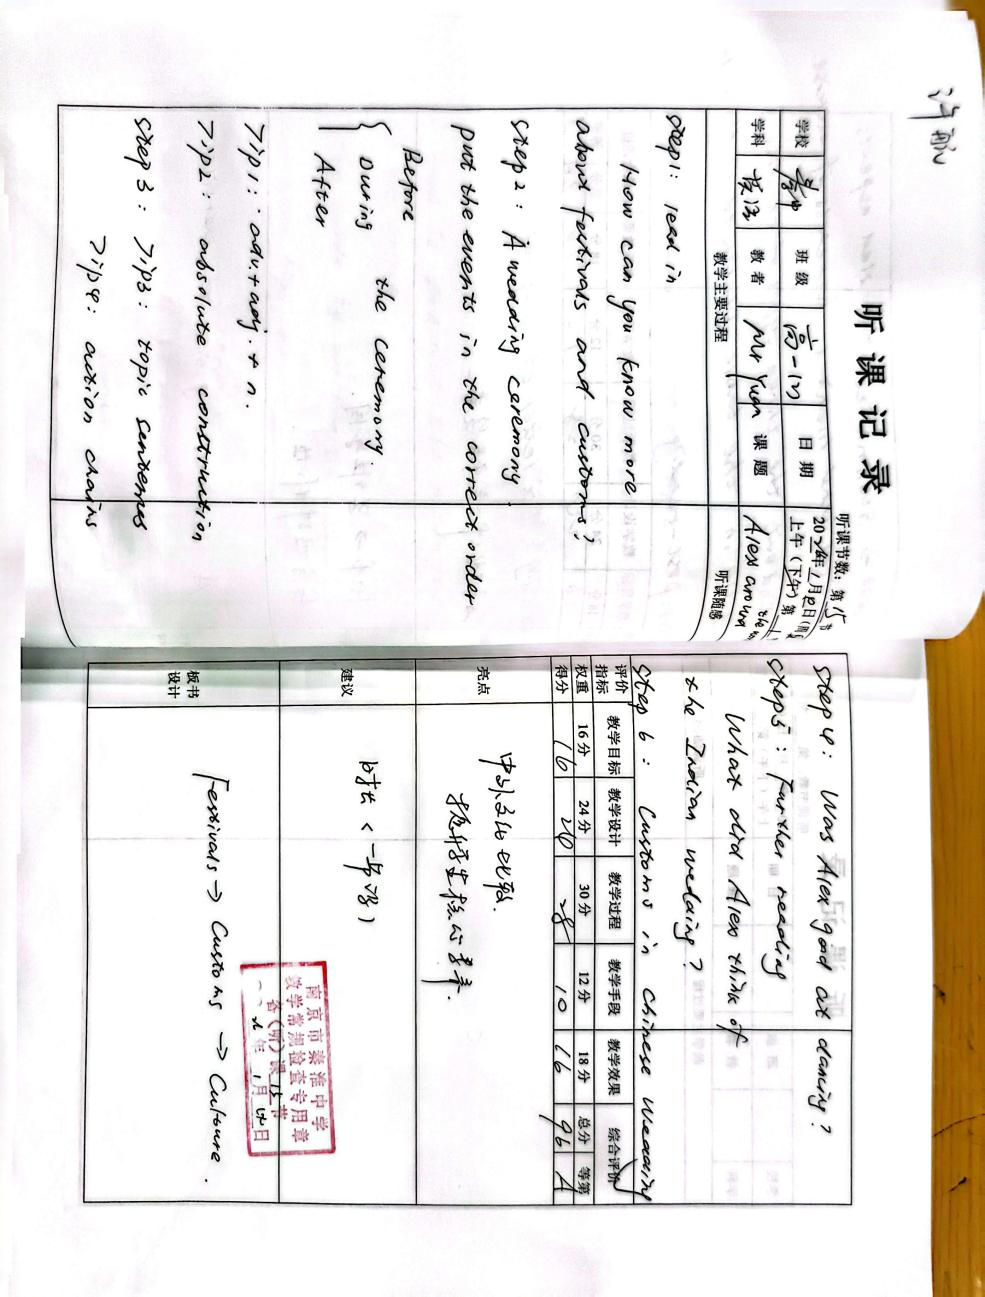 许航
听课记录
听课节数：第15节
学校 秦中 班级 高一(7) 日期 年1月 日
上午（下午）第
学科 英语 教者 Mr Yuan 课题 Alex around the
教学主要过程 听课随感
step1: lead in
How can you know more
about festivals and customs?
step2: A wedding ceremony
put the events in the correct order
Before
During the ceremony.
After
Tip1: adv.+adj.+n.
Tip2: absolute construction
step3: Tip3: topic sentences
Tip4: action chains
step4: Was Alex good at dancing?
step5: Further reading
What did Alex think of
the Indian wedding?
step6: Customs in Chinese wedding
评价指标 教学目标 教学设计 教学过程 教学手段 教学效果 综合评价
权重 16分 24分 30分 12分 18分 总分 等第
得分 16 20 28 10 16 96 A
亮点
中外文化比较.
提升学生核心素养.
建议
时长（一节课）
板书设计
Festivals → Customs → Culture.
南京市秦淮中学
教学常规检查专用章
备（听）课15节
年1月 日